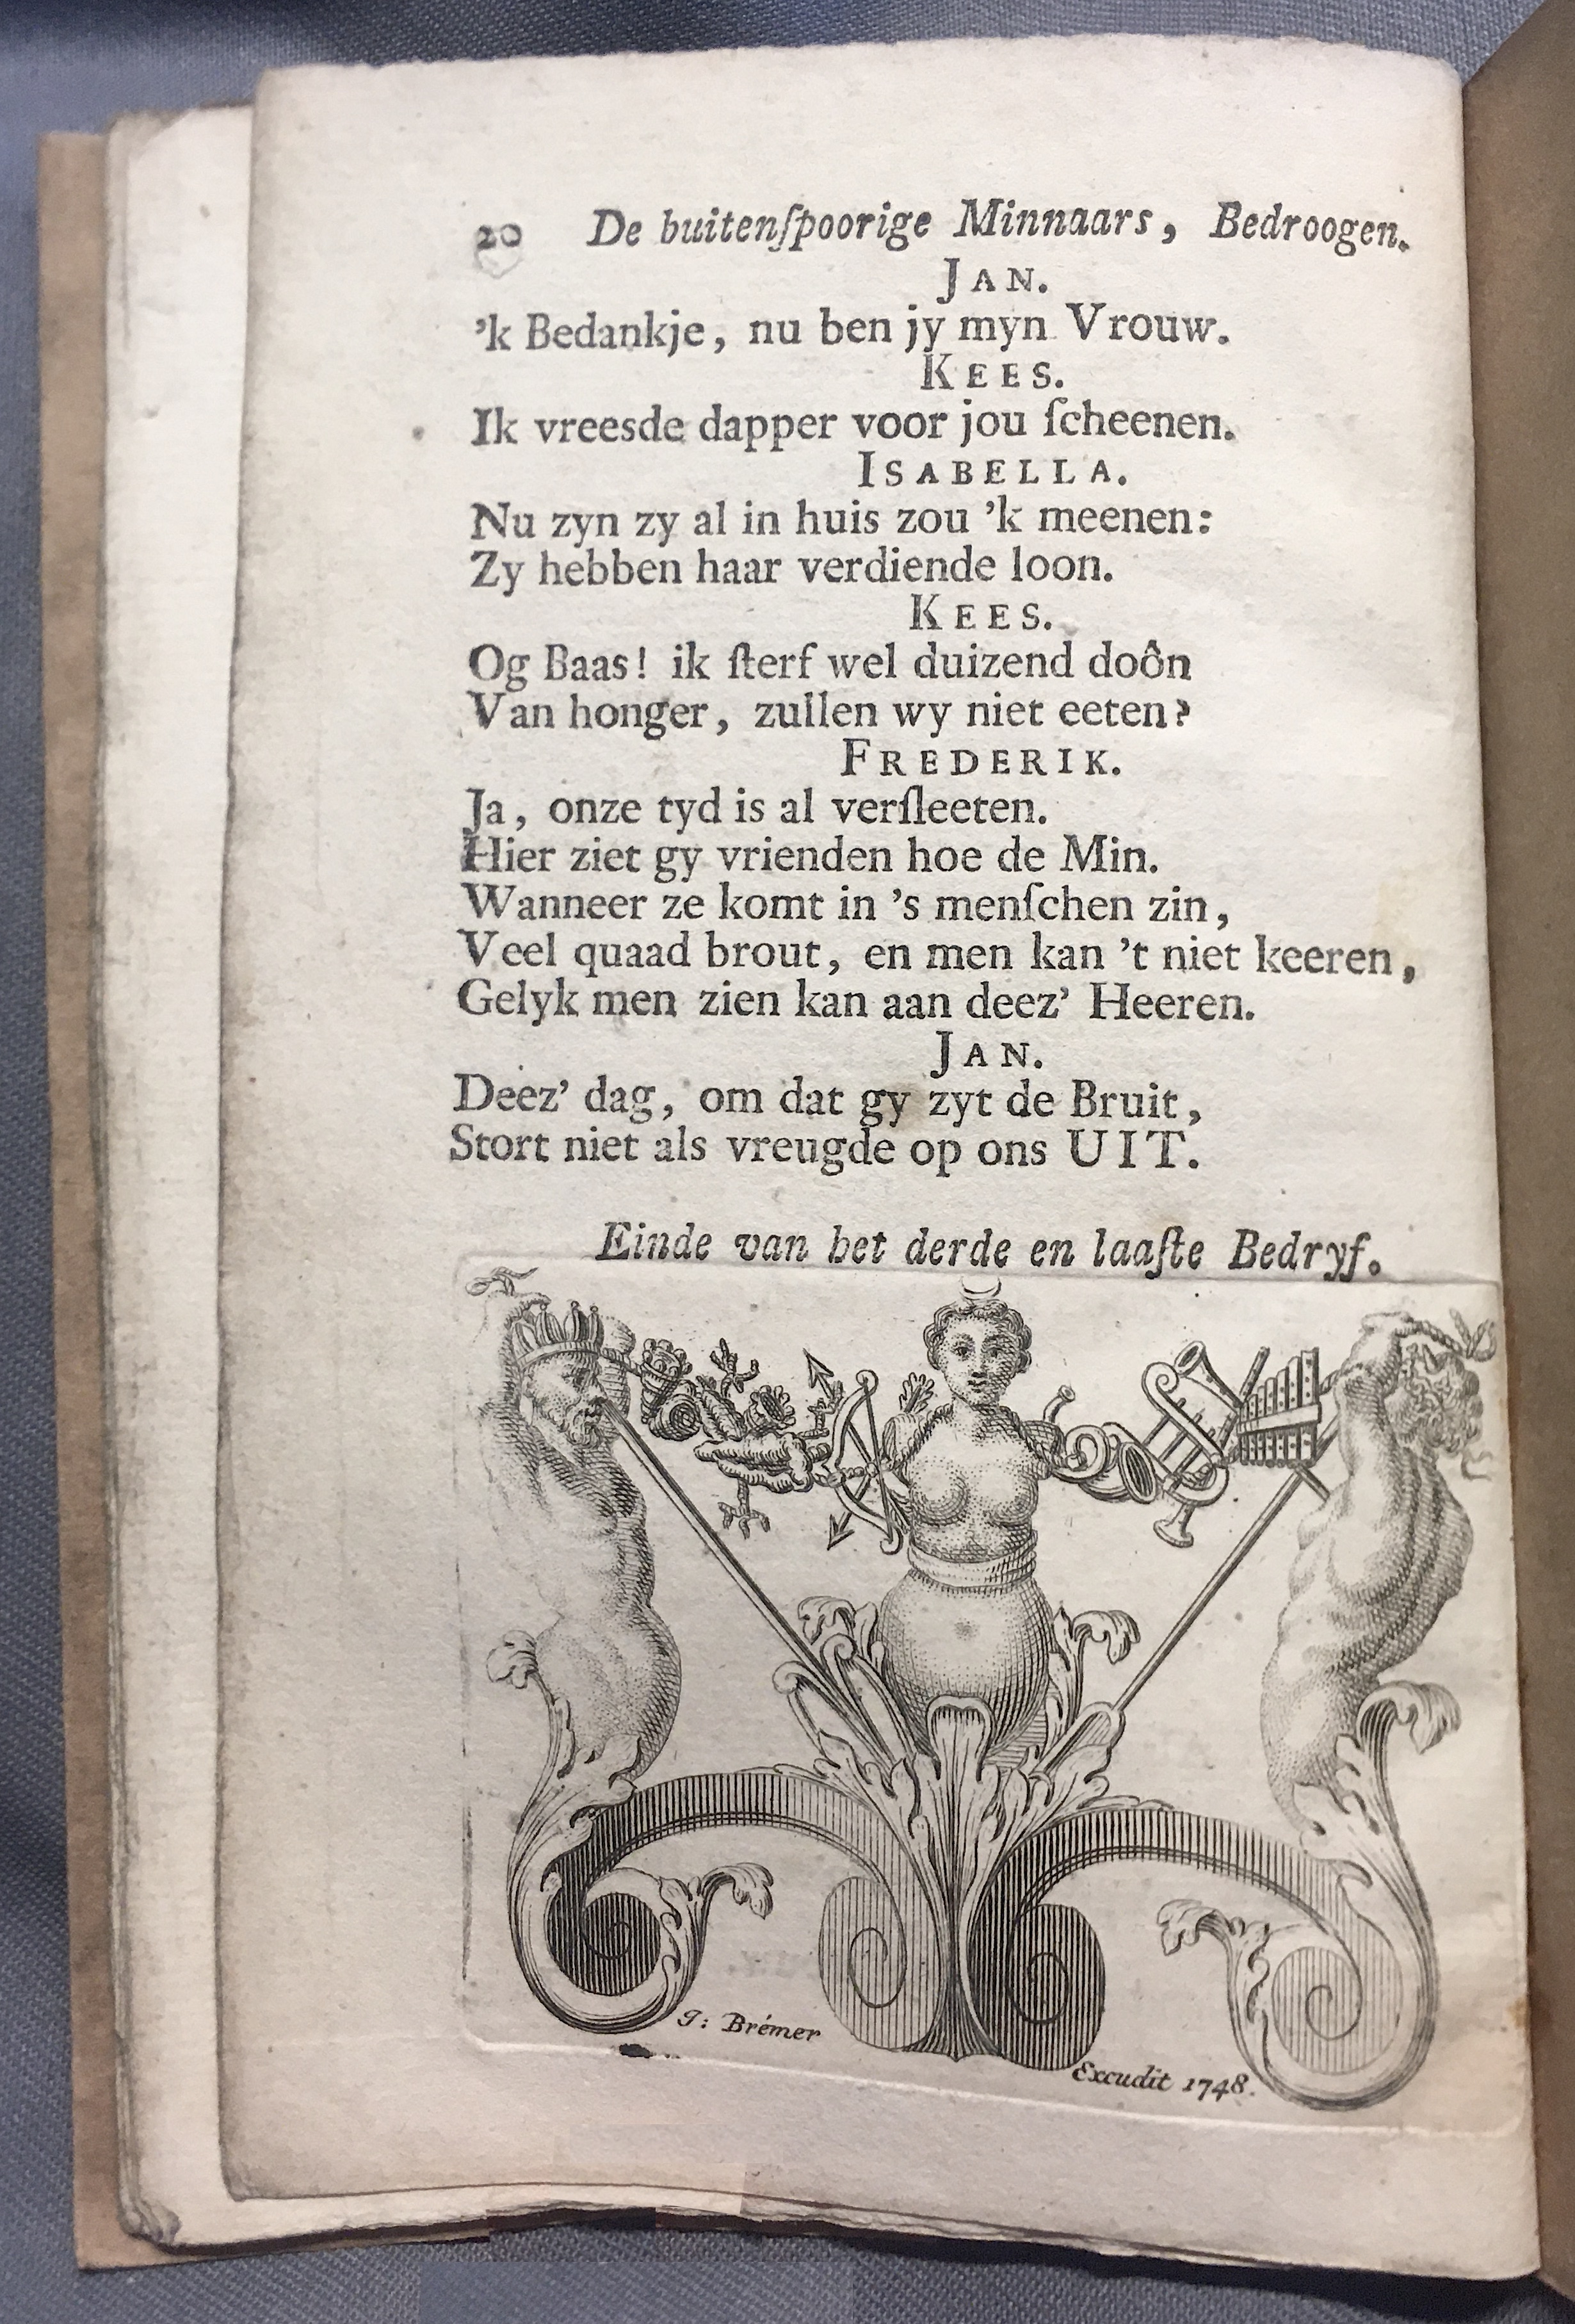 20 De buitenſpoorige Minnaars, Bedroogen.
JAN.
'k Bedankje, nu ben jy myn Vrouw.
KEES.
Ik vreesde dapper voor jou ſcheenen.
ISABELLA.
Nu zyn zy al in huis zou 'k meenen:
Zy hebben haar verdiende loon.
KEES.
Og Baas! ik ſterf wel duizend doôn
Van honger, zullen wy niet eeten?
FREDERIK.
Ja, onze tyd is al verſleeten.
Hier ziet gy vrienden hoe de Min.
Wanneer ze komt in 's menſchen zin,
Veel quaad brout, en men kan 't niet keeren,
Gelyk men zien kan aan deez' Heeren.
JAN.
Deez' dag, om dat gy zyt de Bruit,
Stort niet als vreugde op ons UIT.
Einde van het derde en laaſte Bedryf.
g: Brémer
Excudit 1748.